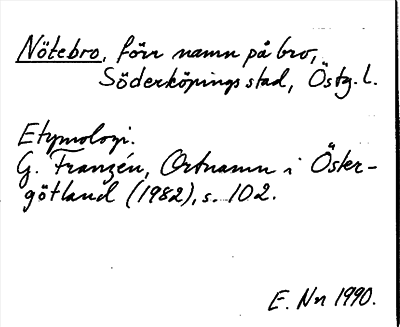 Nötebro, förr namn på bro,
Söderköpings stad, Östg. l.
Etymologi.
G. Franzén, Ortnamn i Öster-
götland (1982), s. 102.
E. Nn 1990.